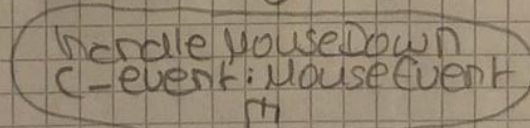 handleMouseDown
(_event:MouseEvent